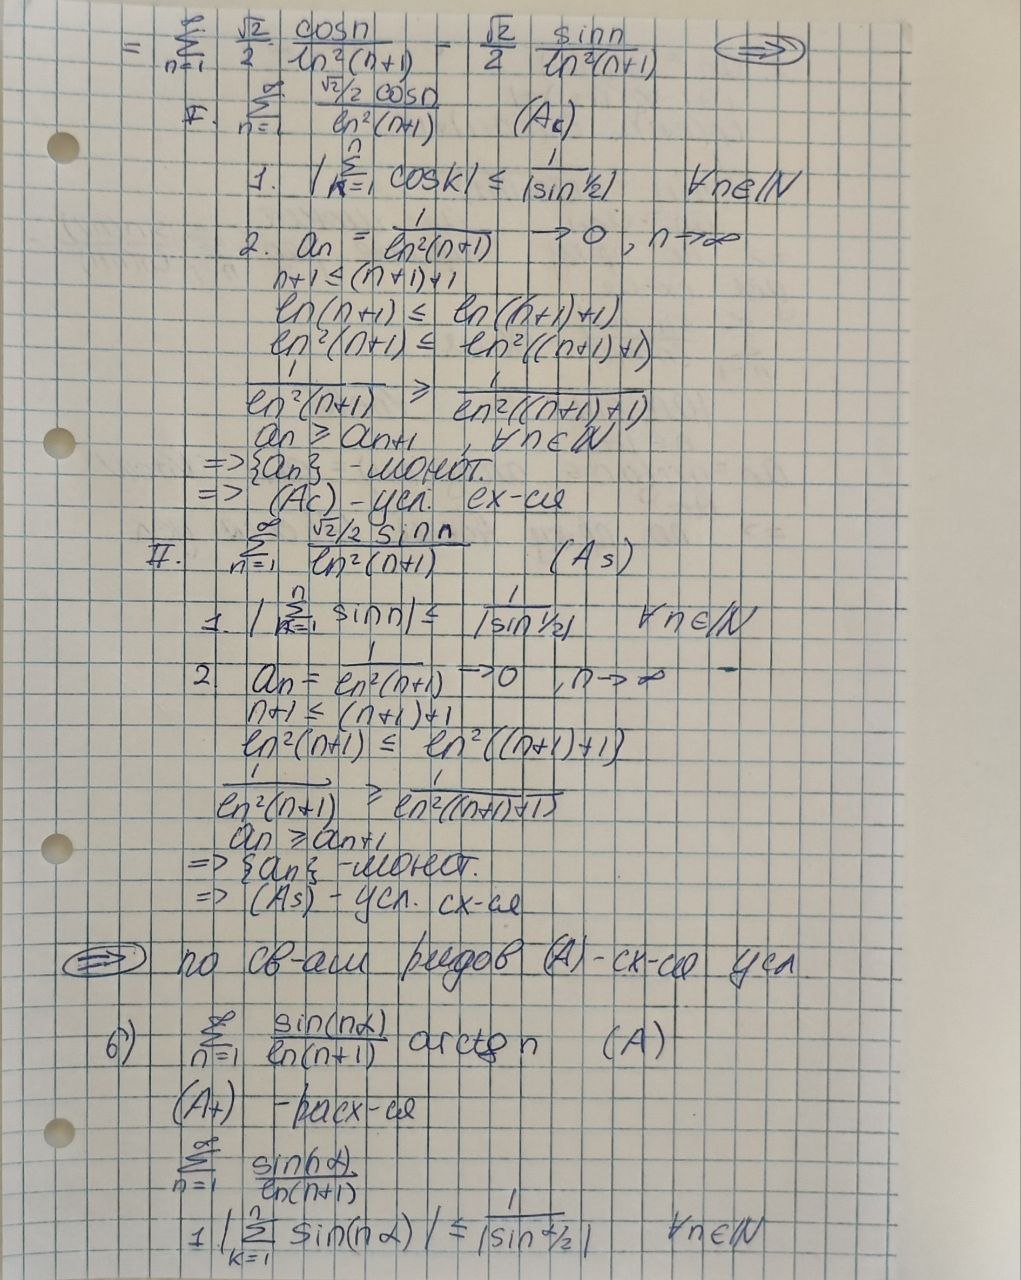 = ∑_{n=1}^{∞} √2/2 · cosn/ln²(n+1) - √2/2 sinn/ln²(n+1) ⇒
I. ∑_{n=1}^{∞} √2/2 cosn/ln²(n+1) (Ac)
1. |∑_{k=1}^{n} cosk| ≤ 1/|sin 1/2| ∀n∈ℕ
2. an = 1/ln²(n+1) → 0 , n→∞
n+1 ≤ (n+1)+1
ln(n+1) ≤ ln((n+1)+1)
ln²(n+1) ≤ ln²((n+1)+1)
1/ln²(n+1) ≥ 1/ln²((n+1)+1)
an ≥ an+1 , ∀n∈ℕ
=> {an} - монот.
=> (Ac) - усл. сх-ся
II. ∑_{n=1}^{∞} √2/2 sinn/ln²(n+1) (As)
1. |∑_{k=1}^{n} sinn| ≤ 1/|sin 1/2| ∀n∈ℕ
2 an = 1/ln²(n+1) → 0 , n→∞
n+1 ≤ (n+1)+1
ln²(n+1) ≤ ln²((n+1)+1)
1/ln²(n+1) ≥ 1/ln²((n+1)+1)
an ≥ an+1
=> {an} - монот.
=> (As) - усл. сх-ся
⇒ по св-ам рядов (A) - сх-ся усл.
б) ∑_{n=1}^{∞} sin(nα)/ln(n+1) arctg n (A)
(A+) - расх-ся
∑_{n=1}^{∞} sin(nα)/ln(n+1)
1 |∑_{k=1}^{n} sin(nα)| ≤ 1/|sin α/2| ∀n∈ℕ